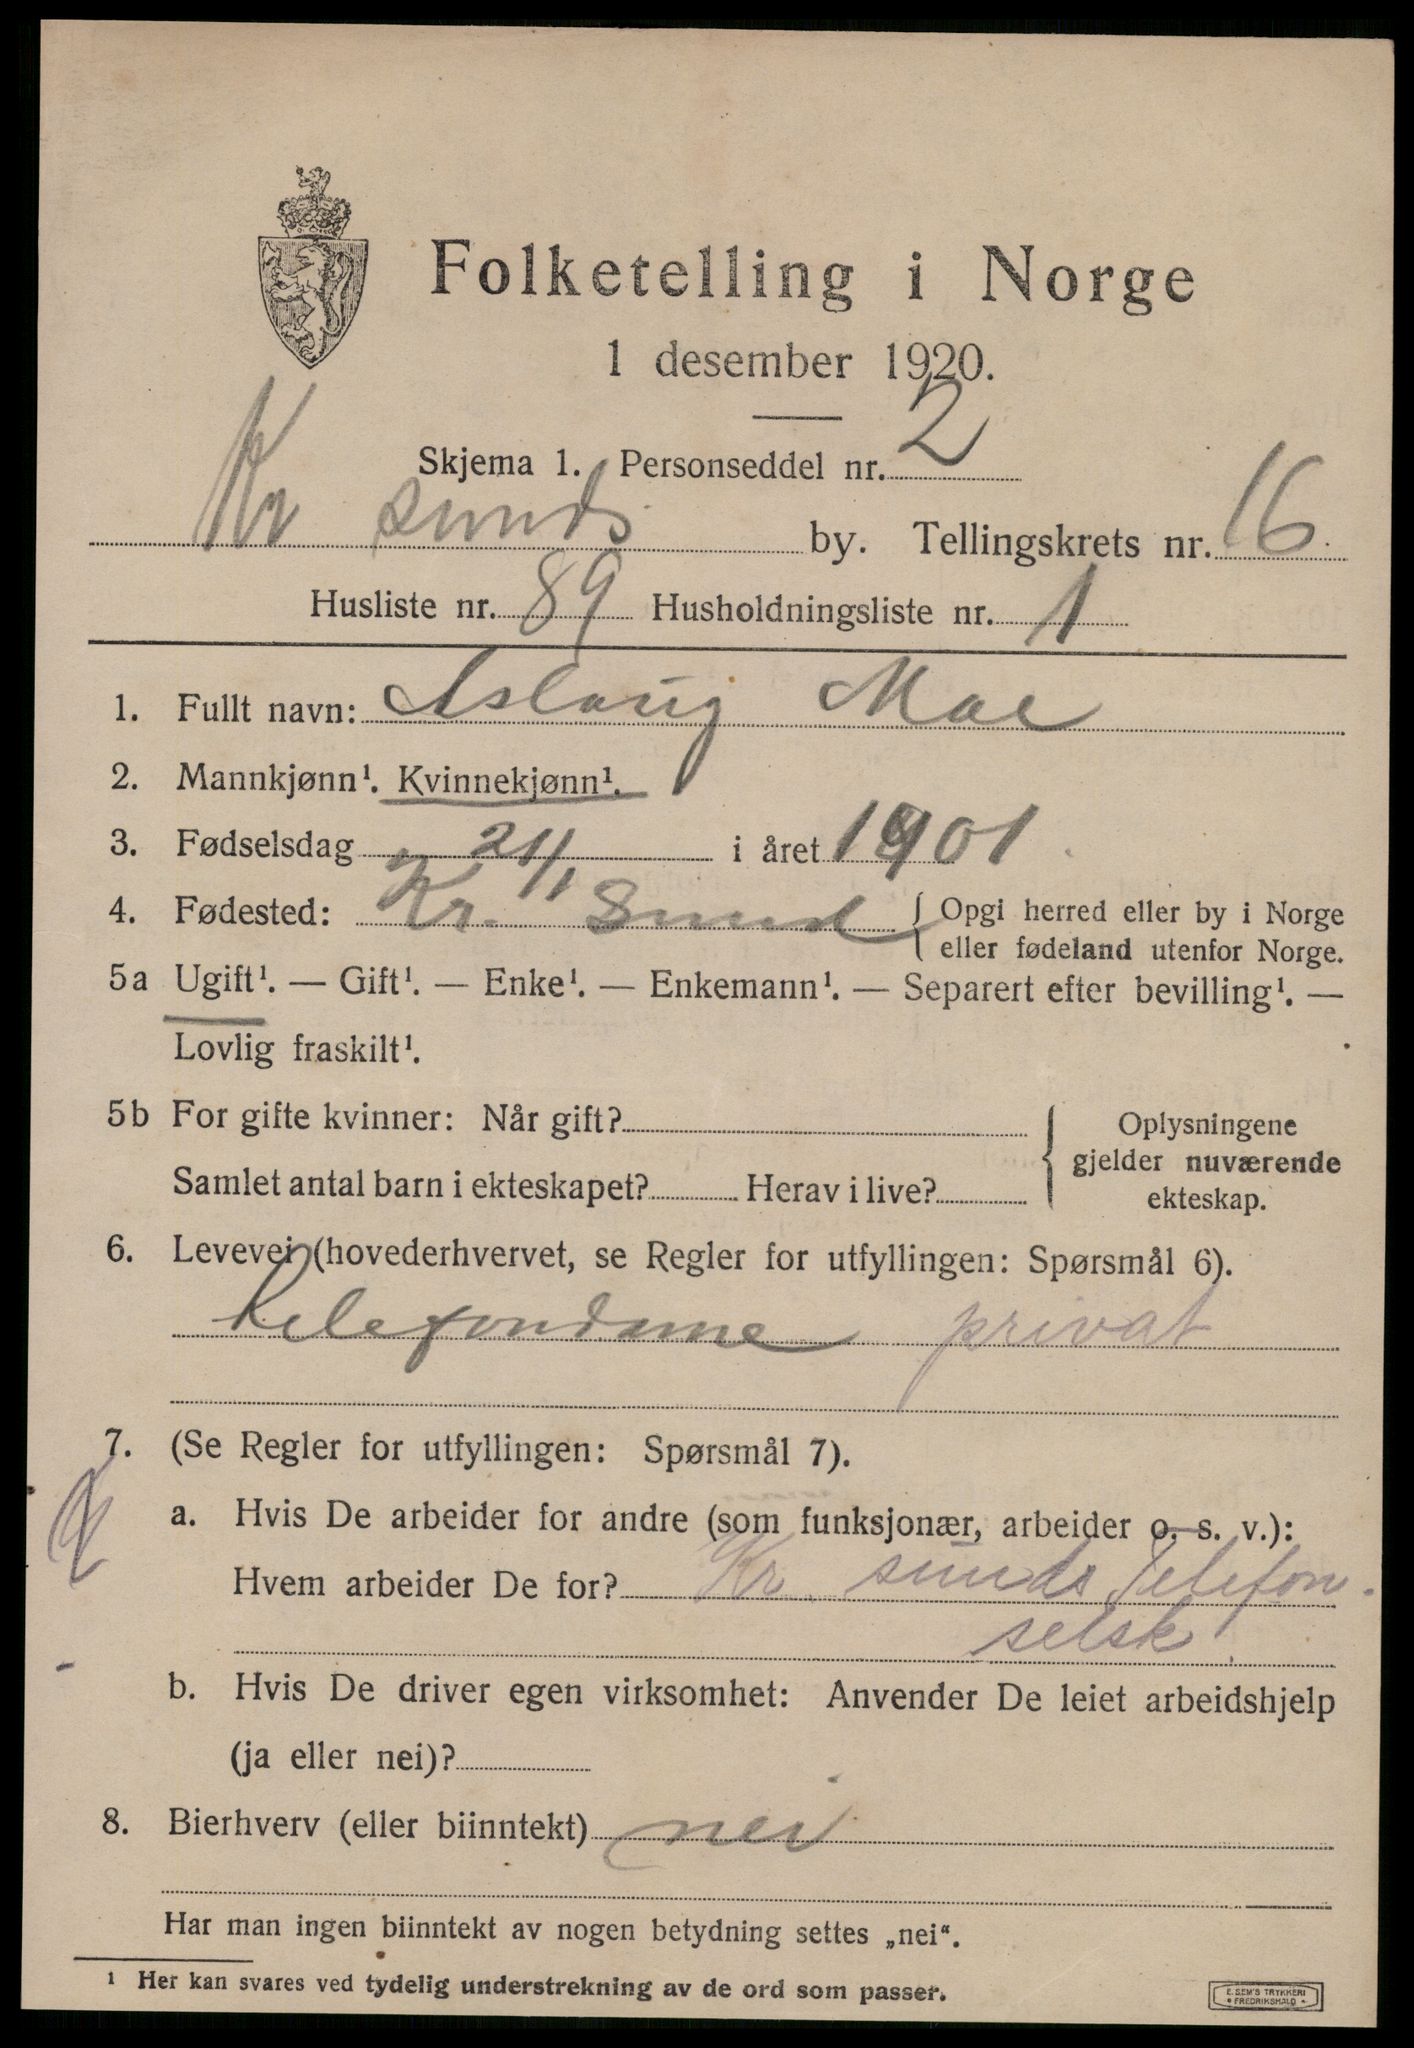 Folketelling i Norge
1 desember 1920.
Skjema 1. Personseddel nr. 2
Kr sunds by. Tellingskrets nr. 16
Husliste nr. 89 Husholdningsliste nr. 1
1. Fullt navn: Aslaug Moe
2. Mannkjønn¹. Kvinnekjønn¹.
3. Fødselsdag 21/1 i året 1901
4. Fødested: Kr. Sund { Opgi herred eller by i Norge
eller fødeland utenfor Norge.
5a Ugift¹. — Gift¹. — Enke¹. — Enkemann¹. — Separert efter bevilling¹. —
Lovlig fraskilt¹.
5b For gifte kvinner: Når gift? { Oplysningene
gjelder nuværende
Samlet antal barn i ekteskapet? Herav i live? ekteskap.
6. Levevei (hovederhvervet, se Regler for utfyllingen: Spørsmål 6).
telefondame privat
7. (Se Regler for utfyllingen: Spørsmål 7).
a. Hvis De arbeider for andre (som funksjonær, arbeider o. s. v.):
Hvem arbeider De for? Kr. sunds Telefon.
selsk.
b. Hvis De driver egen virksomhet: Anvender De leiet arbeidshjelp
(ja eller nei)?
8. Bierhverv (eller biinntekt) nei
Har man ingen biinntekt av nogen betydning settes „nei“.
¹ Her kan svares ved tydelig understrekning av de ord som passer.
E. SEM'S TRYKKERI
FREDRIKSHALD